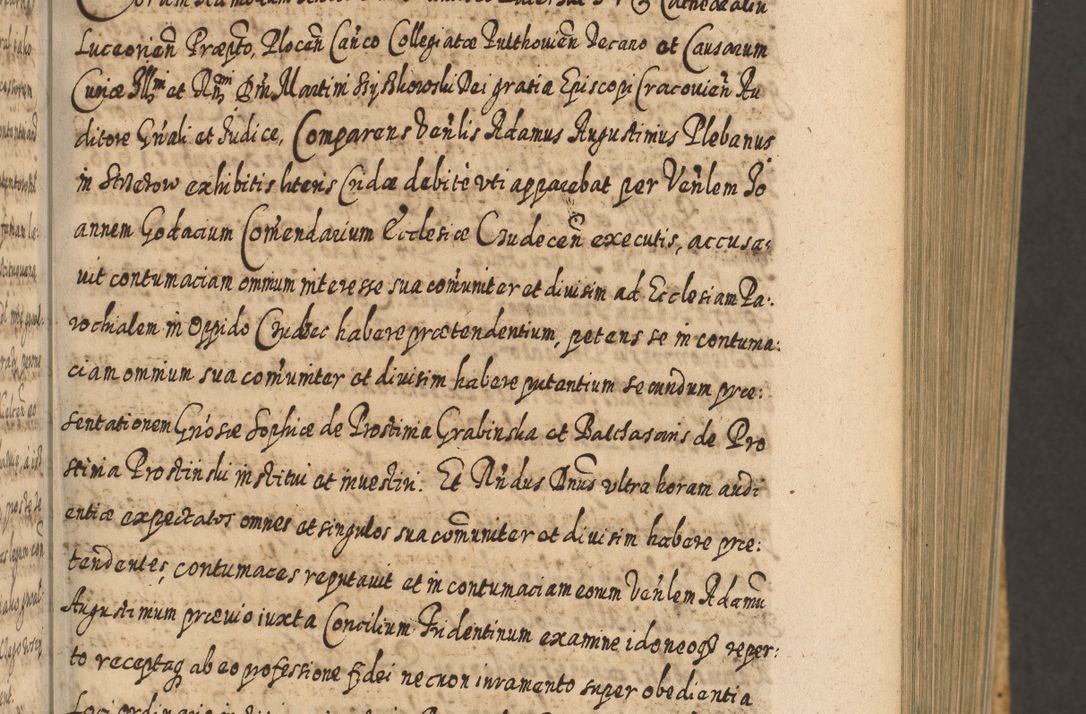 Luceorien̄ Præpt̄o, Plocen̄ Can̄co Collegiatæ Pulthovien̄ Decano et Causarum
Curiæ Illm̄i et Rn̄mi Dn̄i Martini Szyszkowski Dei gratia Episcopi Cracovien̄ Au
ditore Gn̄ali et Judice, Comparens Ven̄lis Adamus Augustinus Plebanus
in exhibitis literis Crudæ debitè uti apparebat per Ven̄lem Jo
annem Godacium Com̄endarium Ecclesiæ Crudecen̄ executis, accusa-
vit contumaciam omnium interesse sua com̄uniter et divisim ad Ecclesiam Pa-
rochialem in Oppido habere prætendentium, petens se in contuma-
ciam omnium sua com̄uniter et divisim habere putantium secundum præ-
sentationem Gn̄osæ Sophiæ de Prostinia Grabinska et Balthasaris de Pro
stinia Prostinski institui et investiri. Et Rn̄dus Dn̄us ultra horam audi
entiæ expectatos omnes et singulos sua com̄uniter et divisim habere præ-
tendentes, contumaces reputavit et in contumaciam eorum Ven̄lem Adamū
Augustinum prævio iuxta Concilium Tridentinum examine idoneoq3 reper-
to receptaq3 ab eo professione fidei necnon iuramento super obedientia